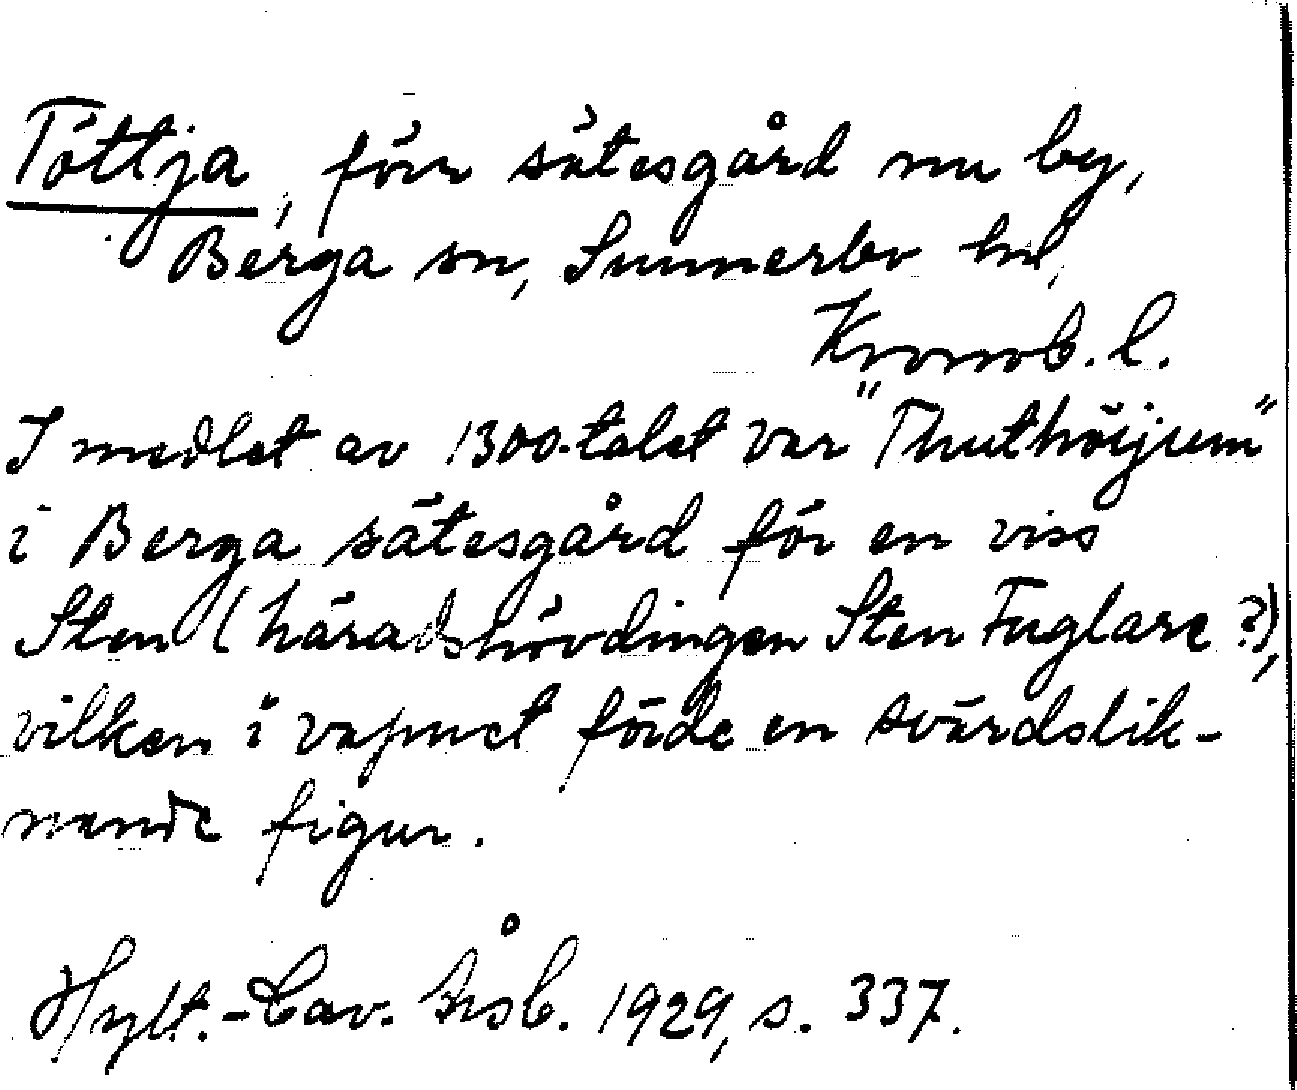 Töttja, förr sätesgård nu by,
Berga sn, Sunnerbo hd,
Kronob. l.
I medlet av 1300-talet var "Thuthöijum"
i Berga sätesgård för en viss
Sten (häradshövdingen Sten Fuglare?),
vilken i vapnet förde en svärdslik-
nande figur.
Hylt.-Cav. Årsb. 1929, s. 337.